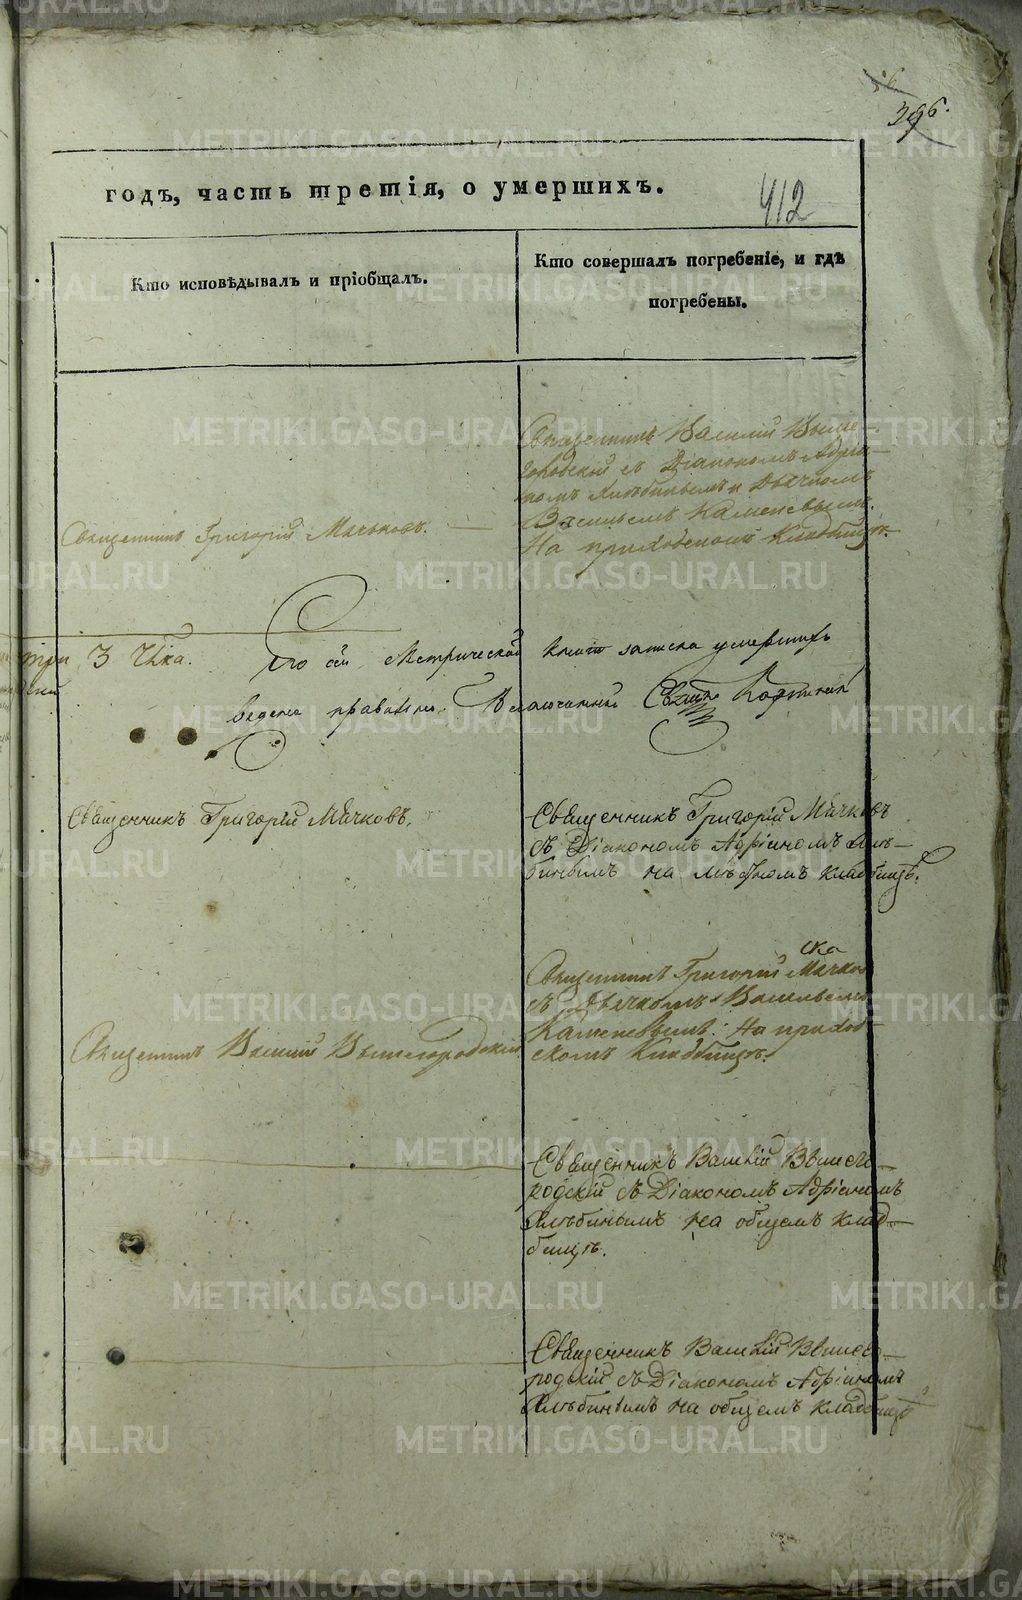 396.
годъ, часть третія, о умершихъ.
412
Кто исповѣдывалъ и пріобщалъ.
Кто совершалъ погребеніе, и гдѣ
погребены.
Священникъ Григорій Мячковъ.
Священникъ Василій Вышего-
родскій съ Діакономъ Адріа-
номъ Хлѣбинымъ и Дьячкомъ
Васильемъ Каменевымъ.
На приходскомъ Кладбищѣ.
три 3 чѣка.
По сей Метрической книге записка умершихъ
ведена правильно. Благочинный Священникъ
Священникъ Григорій Мячковъ.
Священникъ Григорій Мячковъ
съ Діакономъ Адріаномъ Хлѣ-
бинымъ на мѣстномъ кладбищѣ.
Священникъ Василій Вышегородскій
Священникъ Григорій Мячков
съ Дьячкомъ Васильемъ
Каменевымъ. На приход-
скомъ Кладбищѣ.
Священникъ Василій Вышего-
родскій съ Діакономъ Адріаномъ
Хлѣбинымъ на общемъ клад-
бищѣ.
Священникъ Василій Вышего-
родскій съ Діакономъ Адріаномъ
Хлѣбинымъ на общемъ кладбищѣ
METRIKI.GASO-URAL.RU